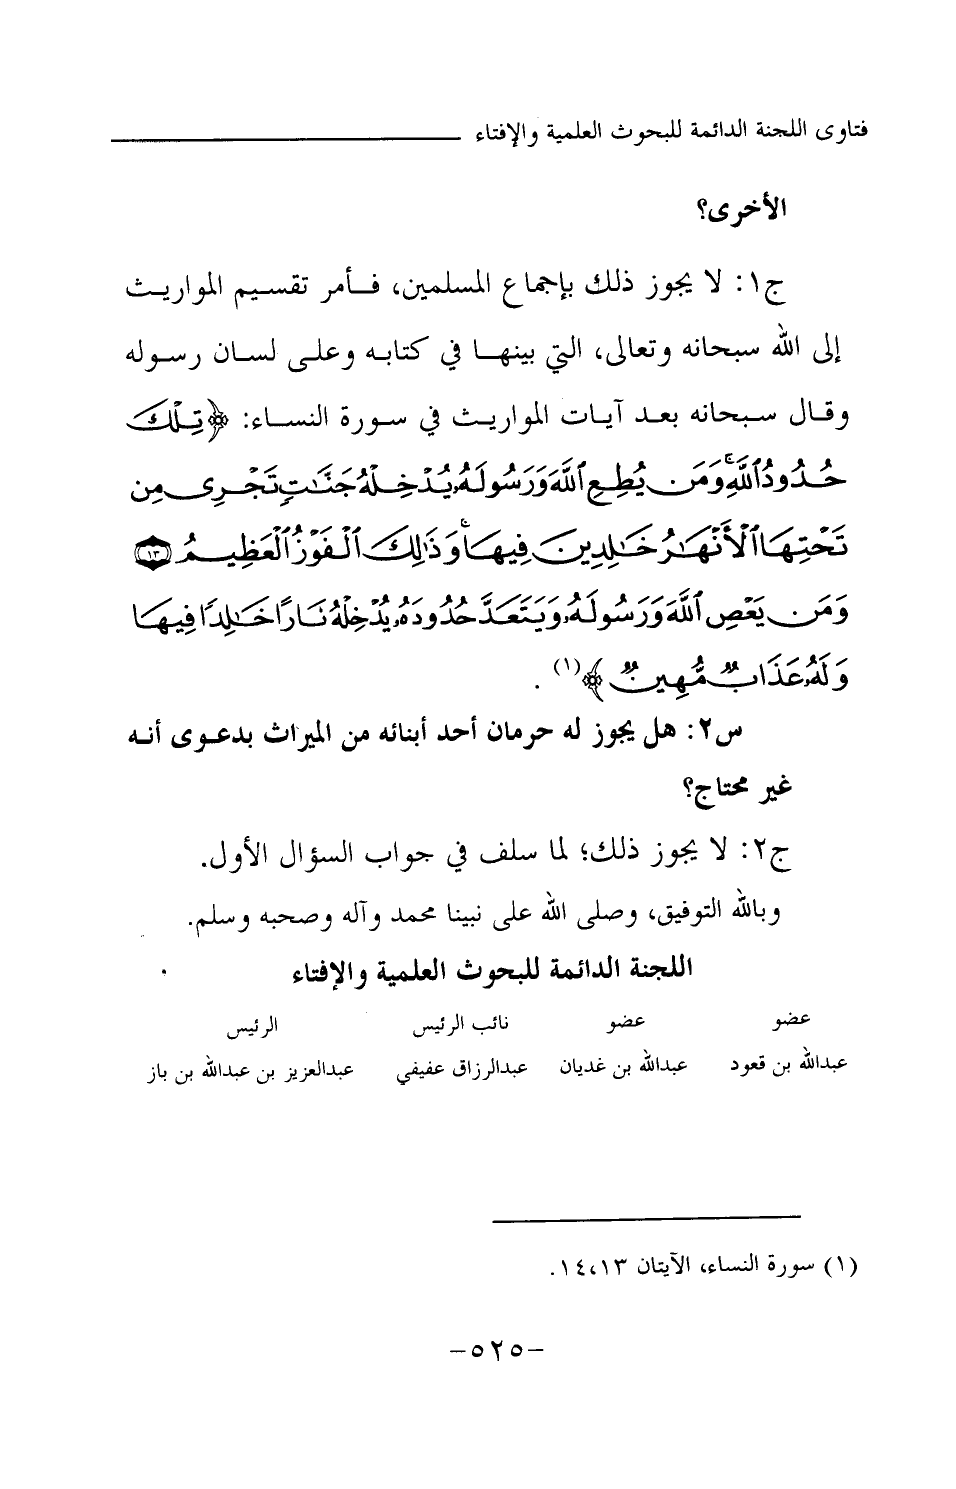 فتاوى اللجنة الدائمة للبحوث العلمية والإفتاء
الأخرى؟
ج١: لا يجوز ذلك بإجماع المسلمين، فـأمر تقسيم المواريث
إلى الله سبحانه وتعالى، التي بينهـا في كتابـه وعلـى لسـان رسـوله
وقـال سـبحانه بعـد آيـات المواريـث في سـورة النسـاء: ﴿تِلْكَ
حُدُودُ ٱللَّهِۚ وَمَن يُطِعِ ٱللَّهَ وَرَسُولَهُۥ يُدْخِلْهُ جَنَّـٰتٍ تَجْرِى مِن
تَحْتِهَا ٱلْأَنْهَـٰرُ خَـٰلِدِينَ فِيهَاۚ وَذَٰلِكَ ٱلْفَوْزُ ٱلْعَظِيمُ ١٣
وَمَن يَعْصِ ٱللَّهَ وَرَسُولَهُۥ وَيَتَعَدَّ حُدُودَهُۥ يُدْخِلْهُ نَارًا خَـٰلِدًا فِيهَا
وَلَهُۥ عَذَابٌ مُّهِينٌ﴾(١) .
س٢: هل يجوز له حرمان أحد أبنائه من الميراث بدعـوى أنـه
غير محتاج؟
ج٢: لا يجوز ذلك؛ لما سلف في جواب السؤال الأول.
وبالله التوفيق، وصلى الله على نبينا محمد وآله وصحبه وسلم.
اللجنة الدائمة للبحوث العلمية والإفتاء
عضو عضو نائب الرئيس الرئيس
عبدالله بن قعود عبدالله بن غديان عبدالرزاق عفيفي عبدالعزيز بن عبدالله بن باز
(١) سورة النساء، الآيتان ١٣،١٤.
-٥٢٥-